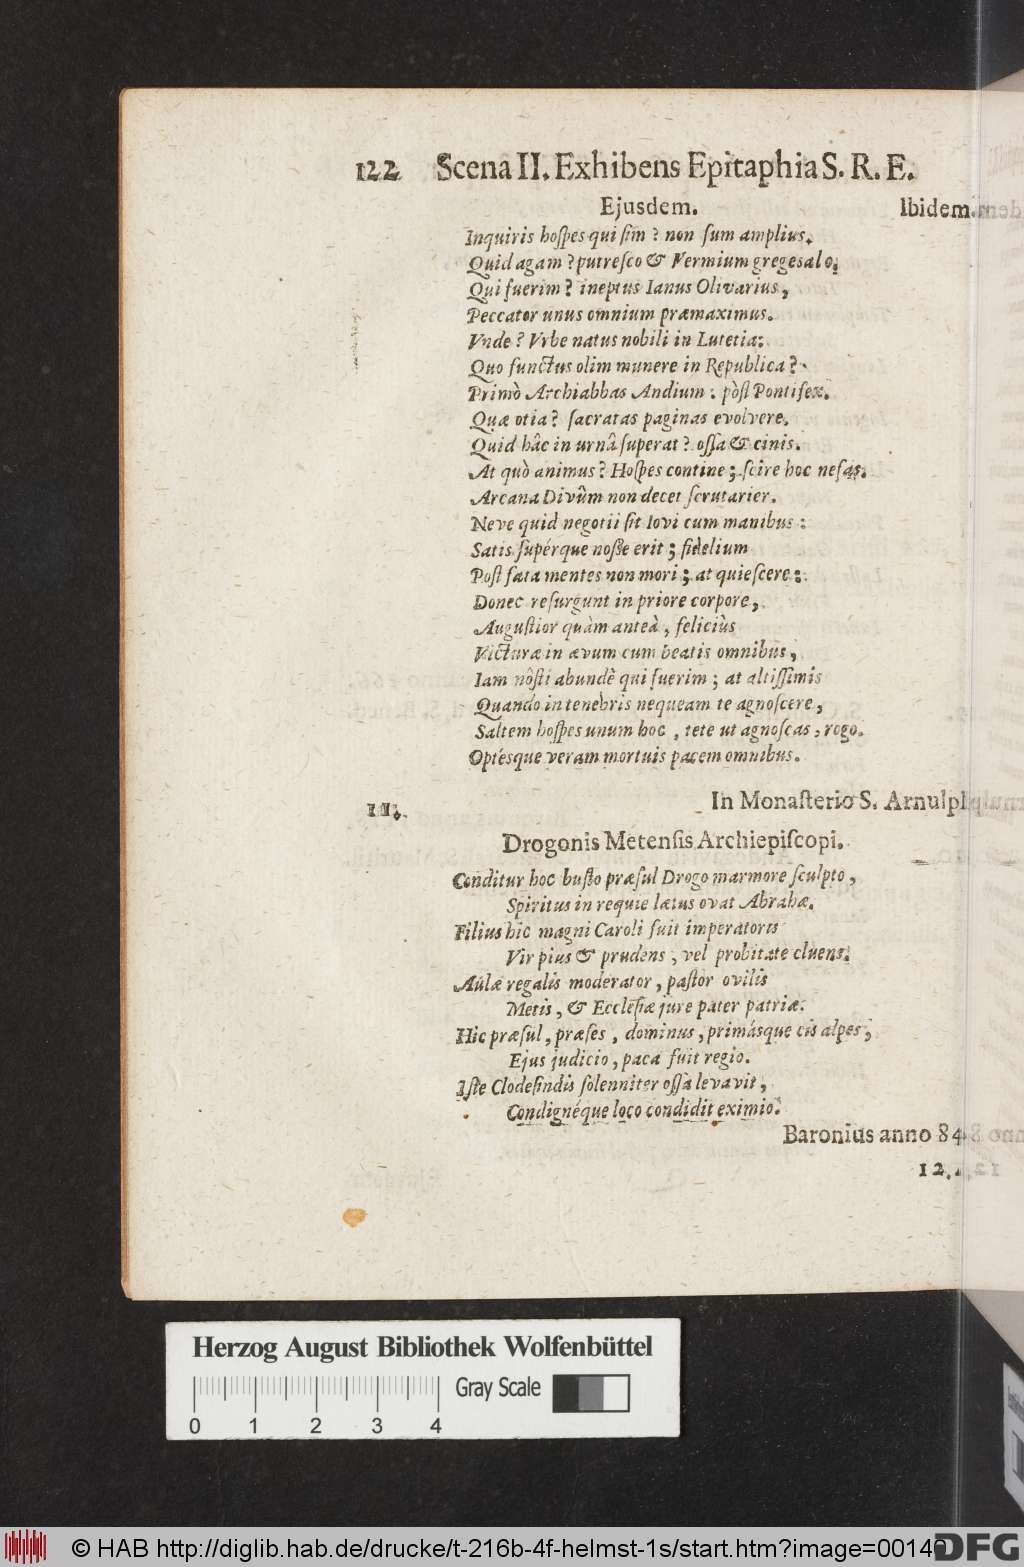 122 Scena II. Exhibens Epitaphia S. R. E.
Ejusdem. Ibidem.
Inquiris hoſpes qui ſim? non ſum amplius.
Quid agam? putreſco & Vermium greges alo.
Qui fuerim? ineptus Ianus Olivarius,
Peccator unus omnium præmaximus.
Vnde? Vrbe natus nobili in Lutetia:
Quo functus olim munere in Republica?
Primò Archiabbas Andium: pòſt Pontifex.
Quæ otia? ſacratas paginas evolvere.
Quid hâc in urnâ ſuperat? oſſa & cinis.
At quò animus? Hoſpes contine; ſcire hoc nefas.
Arcana Divûm non decet ſcrutarier.
Neve quid negotii ſit Iovi cum manibus:
Satis ſupérque noſſe erit; fidelium
Poſt fata mentes non mori; at quieſcere:
Donec reſurgunt in priore corpore,
Auguſtior quàm anteà, feliciùs
Victuræ in ævum cum beatis omnibus,
Iam nôſti abundè qui fuerim; at altiſſimis
Quando in tenebris nequeam te agnoſcere,
Saltem hoſpes unum hoc, tete ut agnoſcas, rogo.
Optésque veram mortuis pacem omnibus.
11. In Monaſterio S. Arnulphi
Drogonis Metenſis Archiepiſcopi.
Conditur hoc buſto præſul Drogo marmore ſculpto,
Spiritus in requie lætus ovat Abrahæ.
Filius hic magni Caroli fuit imperatoris
Vir pius & prudens, vel probitate cluens.
Aulæ regalis moderator, paſtor ovilis
Metis, & Eccleſiæ jure pater patriæ.
Hic præſul, præſes, dominus, primásque cis alpes,
Ejus judicio, paca fuit regio.
Iſte Clodeſindis ſolenniter oſſa levavit,
Condignéque loco condidit eximio.
Baronius anno 848
12.
Herzog August Bibliothek Wolfenbüttel
Gray Scale
0 1 2 3 4
© HAB http://diglib.hab.de/drucke/t-216b-4f-helmst-1s/start.htm?image=00140
DFG